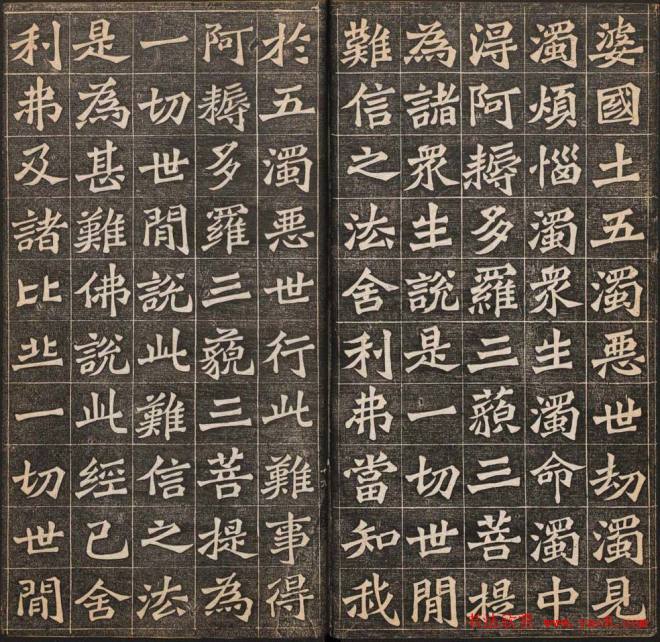 娑國土五濁悪世劫濁見
濁煩惱濁衆生濁命濁中
淂阿耨多羅三藐三菩提
為諸衆生説是一切世間
難信之法舍利弗當知我
於五濁悪世行此難事得
阿耨多羅三藐三菩提為
一切世間説此難信之法
是為甚難佛説此經已舍
利弗及諸比丘一切世間